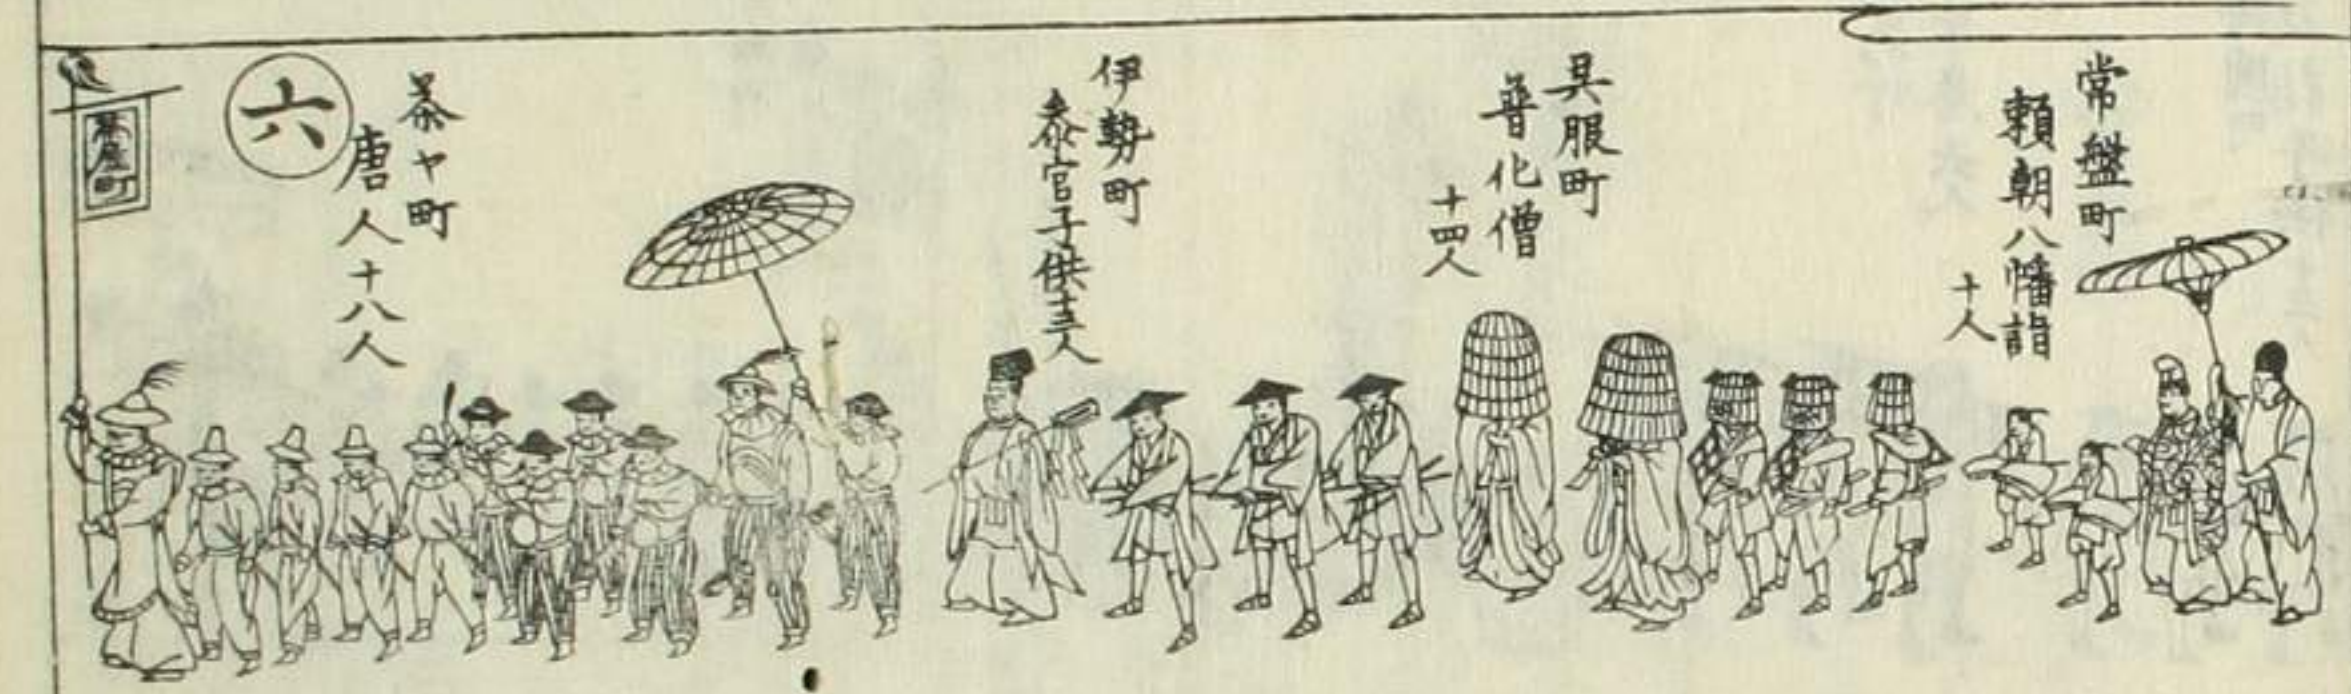 常盤町
頼朝八幡詣
十人
呉服町
普化僧
十四人
伊勢町
泰官子供十三人
茶ヤ町
唐人十八人
六
茶屋町